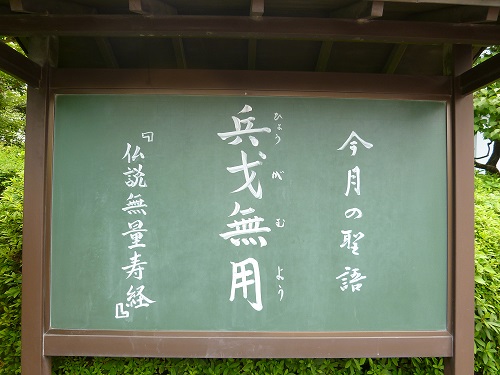 今月の聖語
兵戈無用
ひょうがむよう
『仏説無量寿経』